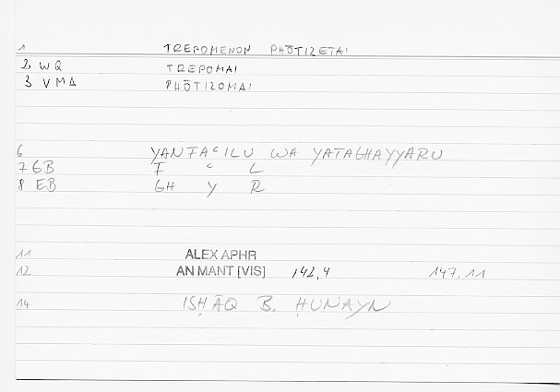 1 TREPOMENON PHŌTIZETAI
2 WQ TREPOMAI
3 VMA PHŌTIZOMAI
6 YANFAʿILU WA YATAGHAYYARU
7 GB F ʿ L
8 EB GH Y R
11 ALEX APHR
12 AN MANT [VIS] 142,4 147.11
14 ISḤĀQ B. ḤUNAYN